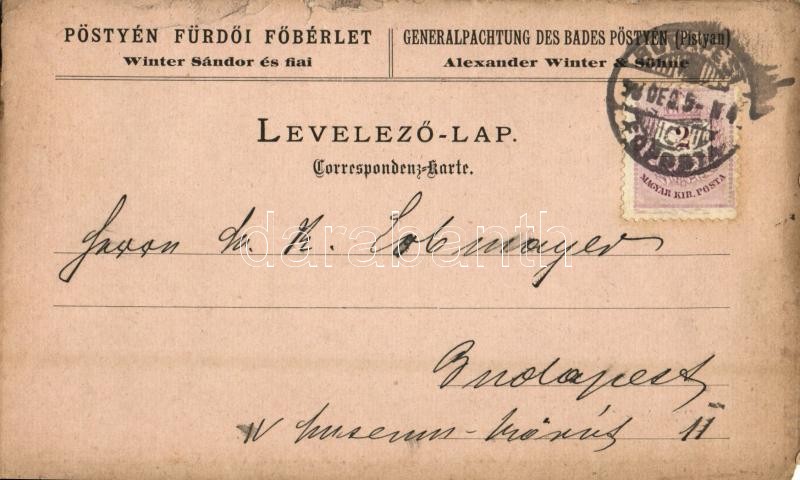 PÖSTYÉN FÜRDŐI FŐBÉRLET
Winter Sándor és fiai
GENERALPACHTUNG DES BADES PÖSTYÉN (Pistyan)
Alexander Winter & Söhne
LEVELEZŐ-LAP.
Correspondenz-Karte.
2
MAGYAR KIR. POSTA
Herrn M. K. Lobmayer
darabanth
Budapest
IV Museum-körút 11